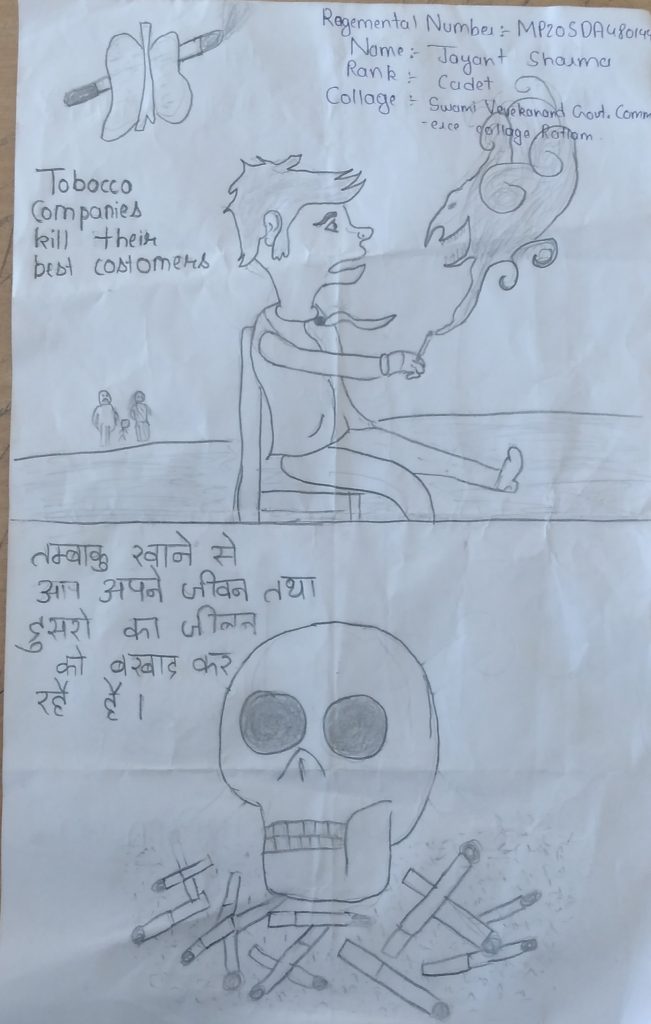 Regemental Number:- MP20SDA480144
Name:- Jayant Sharma
Rank:- Cadet
Collage:- Swami Vevekanand Govt. Comm
-erce collage Ratlam
Tobocco
Companies
kill their
best costomers
तम्बाकु खाने से
आप अपने जीवन तथा
दुसरो का जीवन
को बरबाद कर
रहै है।